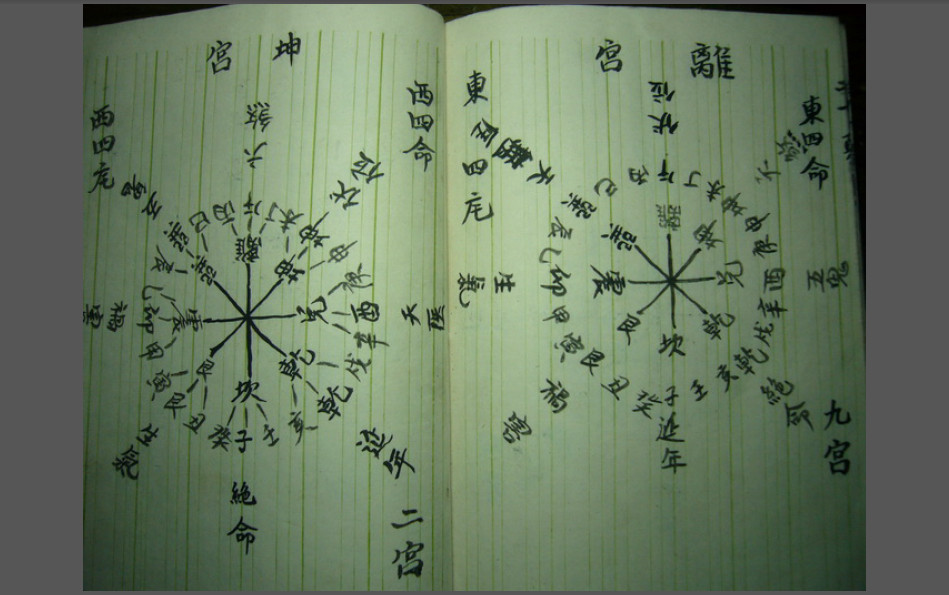 坤宮
西四命
西四宅
六煞
伏位
天医
延年
絶命
生氣
禍害
五鬼
午丁未坤申庚酉辛戌乾亥壬子癸丑艮寅甲卯乙辰巽巳丙
離坤兌乾坎艮震巽
二宮
離宮
東四命
東四宅
伏位
六煞
五鬼
絶命
延年
禍害
生氣
午丁未坤申庚酉辛戌乾亥壬子癸丑艮寅甲卯乙辰巽巳丙
離坤兌乾坎艮震巽
九宮